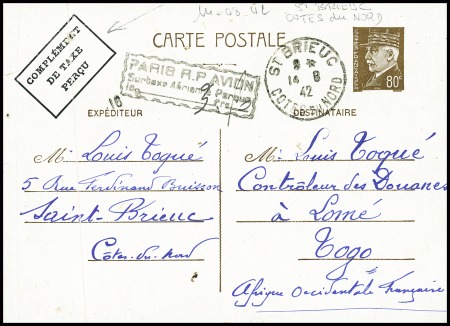 St BRIEUC
COTES du NORD
COMPLÉMENT
DE TAXE
PERÇU
CARTE POSTALE
PARIS R.P AVION
Surtaxe Aérienne Perçue
ST BRIEUC
14 8
42
COTES DU NORD
80c
EXPÉDITEUR
DESTINATAIRE
M. Louis Toqué
5 Rue Ferdinand Buisson
Saint-Brieuc
Côtes-du-Nord
M. Louis Toqué
Contrôleur des Douanes
à Lomé
Togo
Afrique Occidentale Française